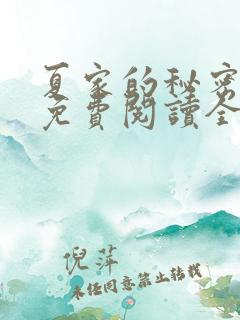 夏家的秘密
免費閱讀全
倪萍
未经同意禁止转载